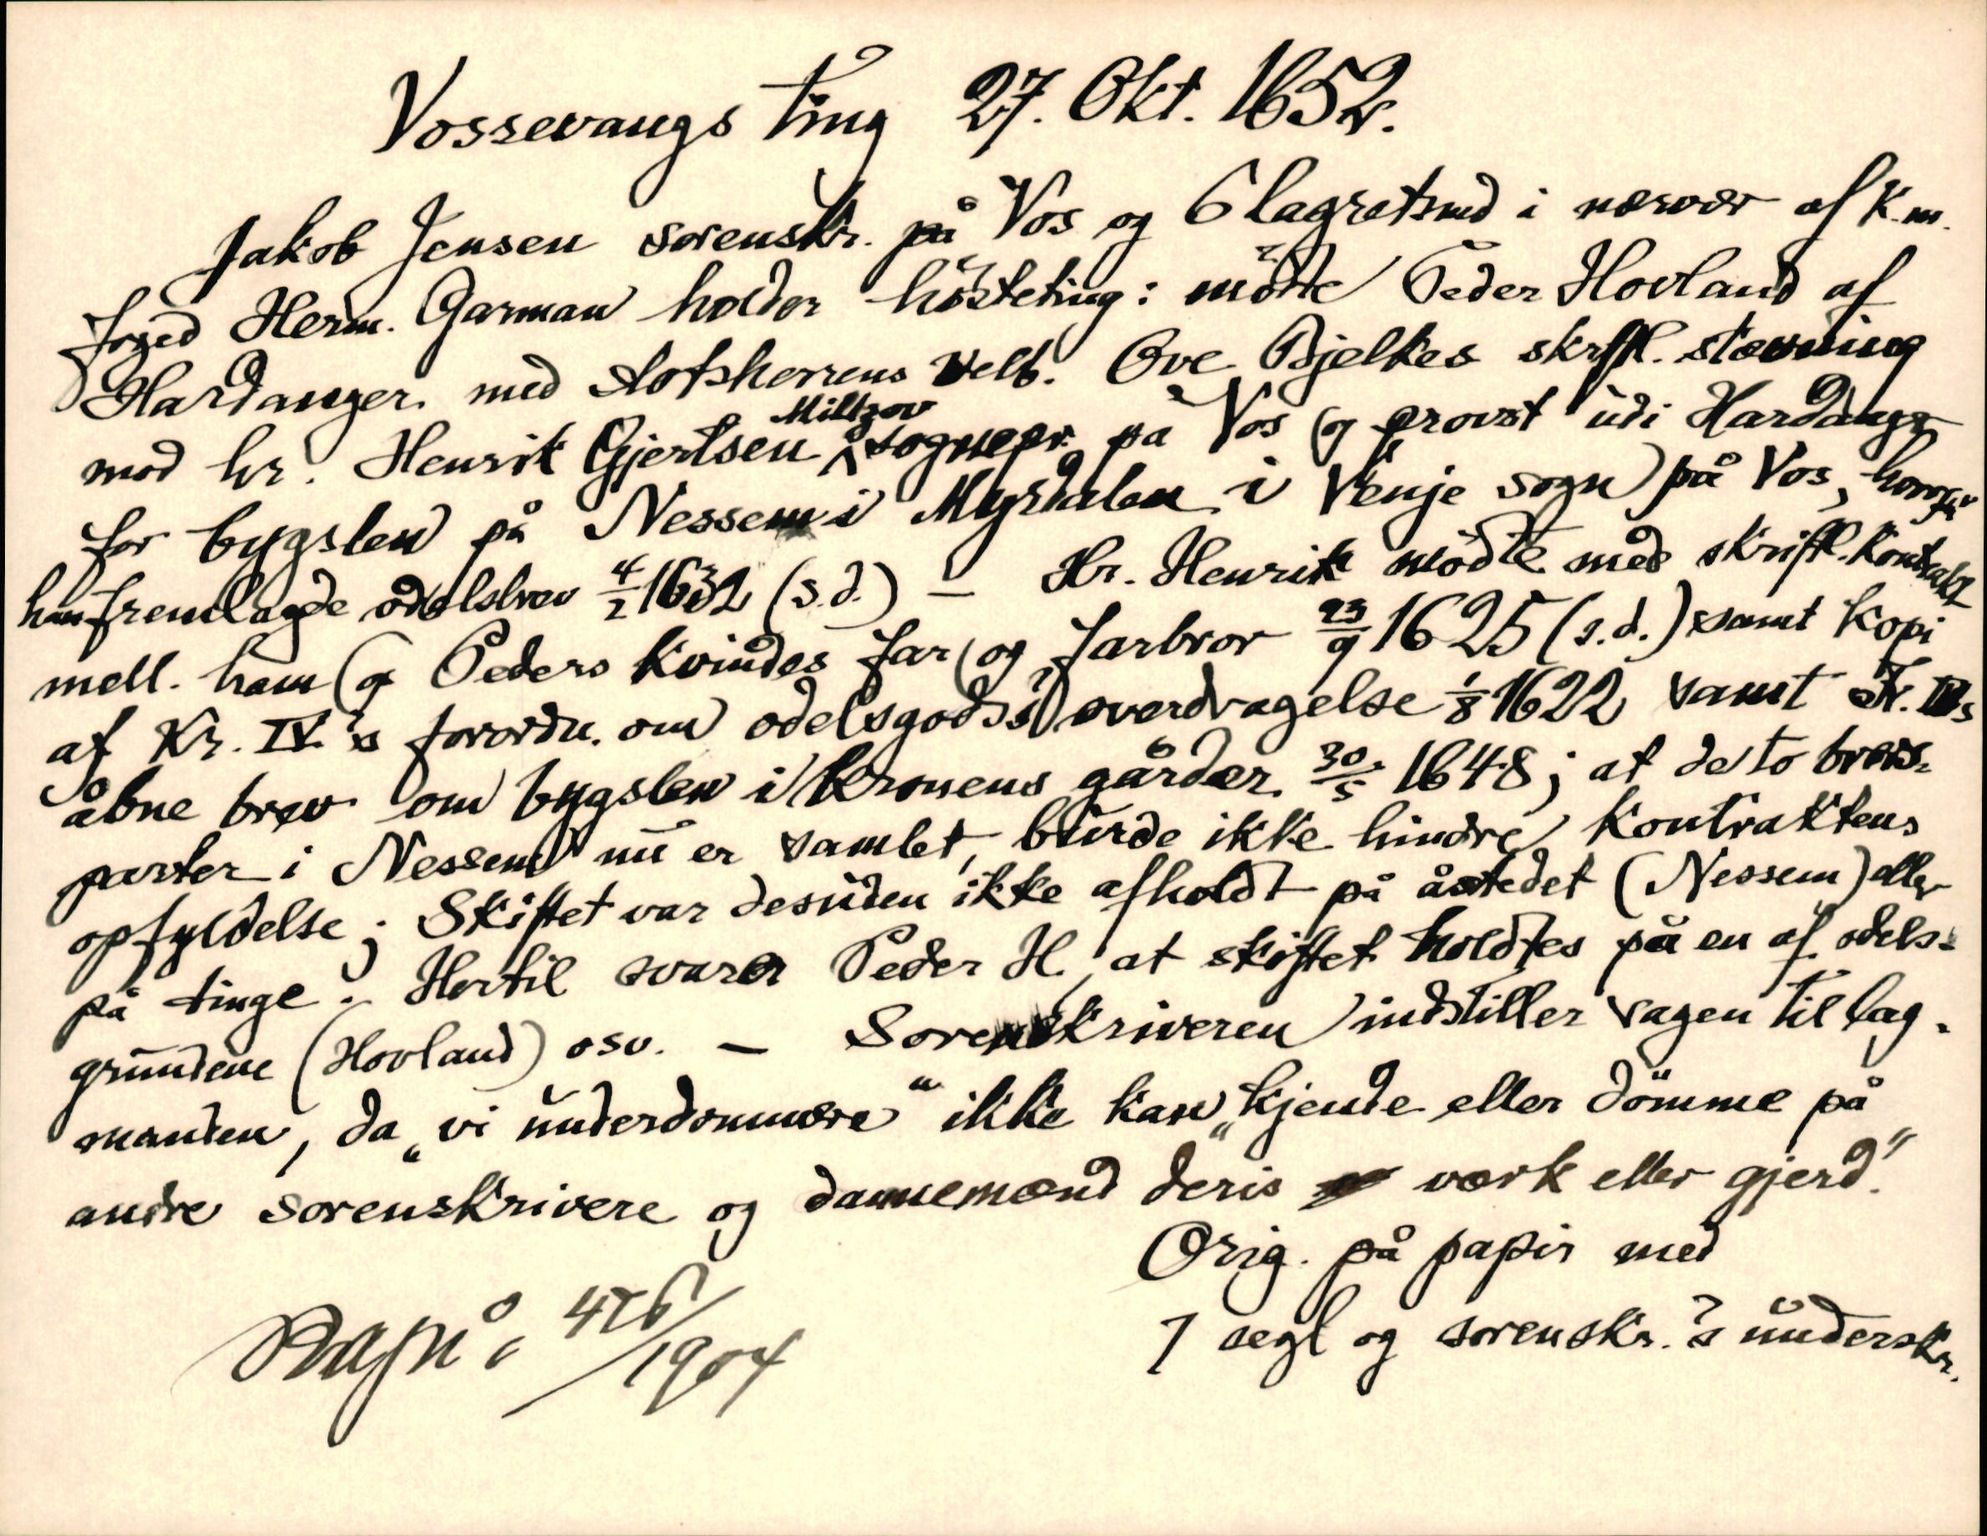 Vossevangs ting 27. Okt. 1652.
Jakob Jensen sorenskr. på Vos og 6 lagretsmd i nærvær af K. m.
foged Herm. Garman holder hösteting: mötte Peder Hovland af
Hardanger med slotsherrens velb. Ove Bjelkes skrftl. stævning
mod hr. Henrik Gjertsen Miltzov sognepr. på Vos og provst udi Hardanger
for bygslen på Nessem i Myrdalen i Vinje sogn på Vos, hvorpå
han fremlagde odelsbrev 4/2 1632 (s.d.) – Hr. Henrik mödte med skriftl. kontrakt
mell. ham og Peders kvindes far og farbror 23/9 1625 (s.d.) samt kopi
af Kr. IV's forordn. om odelsgodsis overdragelse 1/8 1622 samt Fr. IIIs
åbne brev om bygslen i kronens gårder 30/5 1648; at de to brors-
parter i Nessem nu er samlet, burde ikke hindre kontraktens
opfyldelse; Skiftet var desuden ikke afholdt på åstedet (Nessem) eller
på tinge. Hertil svarer Peder H. at skiftet holdtes på en af odels-
grundene (Hovland) osv. – Sorenskriveren indstiller sagen til lag-
manden, da „vi underdommere“ ikke kan „kjende eller dömme på
andre sorenskrivere og dannemænd deris værk eller gjerd.“
Orig. på papir med
7 segl og sorenskr.'s underskr.
476/1904